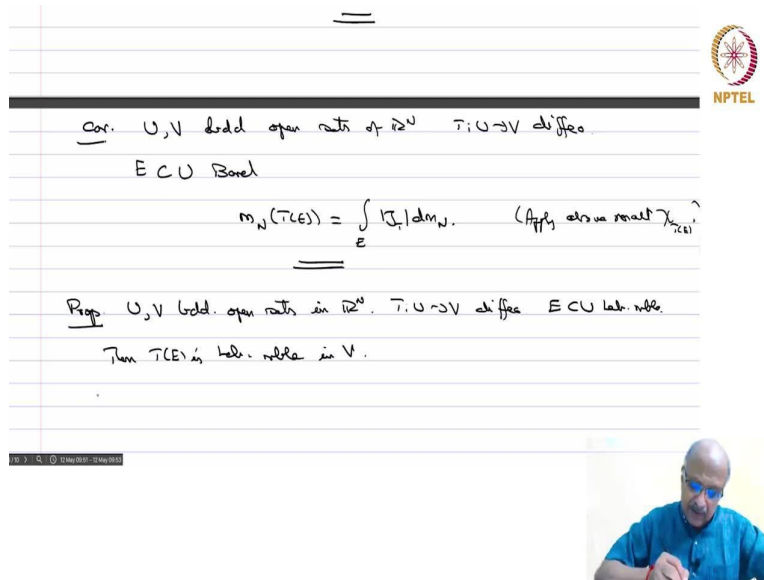 NPTEL
Cor. U, V bdd open sets of ℝᴺ T: U→V diffeo.
E ⊂ U Borel
m_N(T(E)) = ∫_E |J_T| dm_N. (Apply above result χ_{T(E)})
Prop. U, V bdd. open sets in ℝᴺ. T: U→V diffeo E ⊂ U Leb. mble.
Then T(E) is Leb. mble in V.
/10 12 May 09:51 - 12 May 09:53